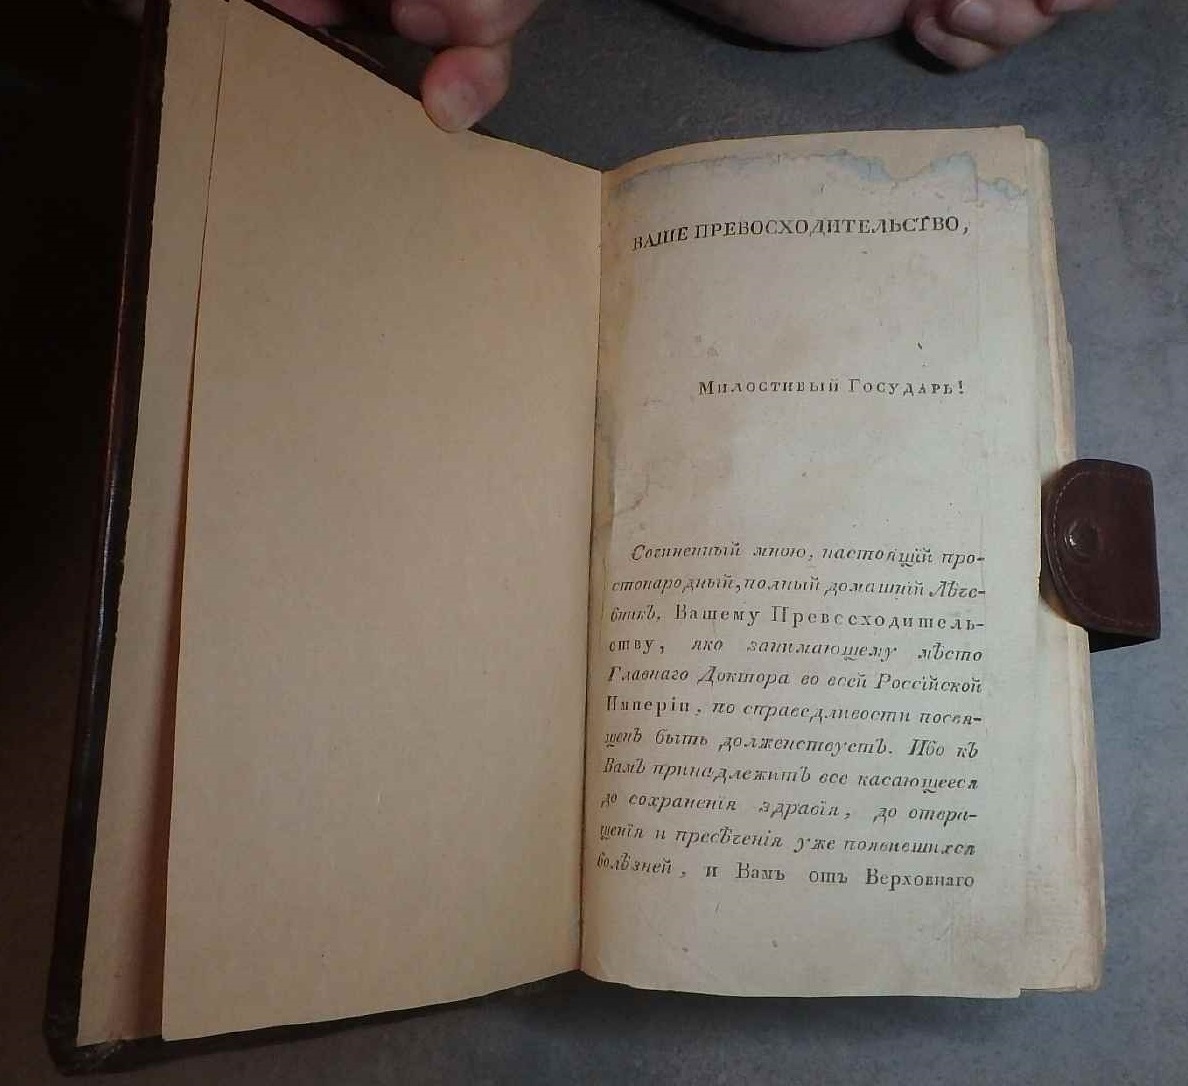 ВАШЕ ПРЕВОСХОДИТЕЛЬСТВО,
Милостивый Государь!
Сочиненный мною, настоящїй про-
стонародный, полный домашнїй Лѣче-
бникъ, Вашему Превосходитель-
ству, яко занимающему мѣсто
Главнаго Доктора во всей Россїйской
Имперїи, по справедливости посвя-
щенъ быть долженствуетъ. Ибо къ
Вамъ принадлежитъ все касающееся
до сохраненїя здравїя, до отвра-
щенїя и пресѣченїя уже появившихся
болѣзней, и Вамъ отъ Верховнаго